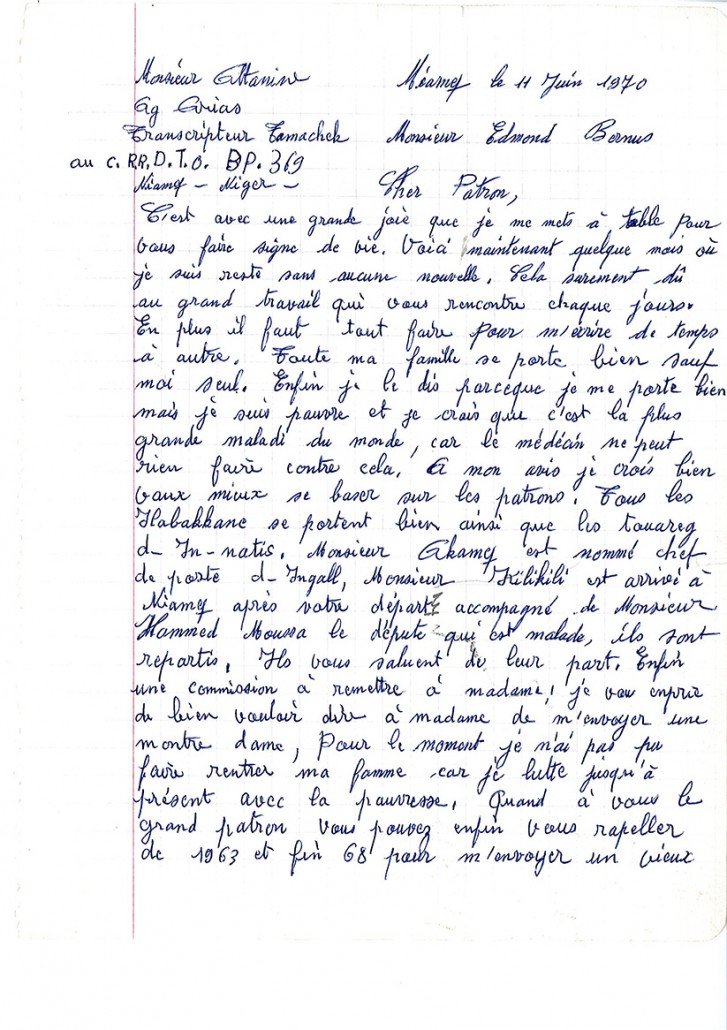 Monsieur Attanine Niamey le 11 Juin 1970
Ag Arias
Transcripteur Tamachek Monsieur Edmond Bernus
au C.R.R.D.T.O. BP. 369
Niamey - Niger - Cher Patron,
C'est avec une grande joie que je me mets à table pour
vous faire signe de vie. Voici maintenant quelque mois où
je suis resté sans aucune nouvelle. Cela surement dû
au grand travail qui vous rencontre chaque jours.
En plus il faut tout faire pour m'écrire de temps
à autre. Toute ma famille se porte bien sauf
moi seul. Enfin je le dis parceque je me porte bien
mais je suis pauvre et je crois que c'est la plus
grande maladi du monde, car le médécin ne peut
rien faire contre cela. A mon avis je crois bien
vaux mieux se baser sur les patrons. Tous les
Habakkane se portent bien ainsi que les touareg
d- In-natis. Monsieur Akamey est nommé chef
de poste d- Ingall, Monsieur Kilikili est arrivé à
Niamey après votre départ accompagné de Monsieur
Hammed Moussa le députe qui est malade, ils sont
repartis. Ils vous saluent de leur part. Enfin
une commission à remettre à madame! je vou enprie
de bien vouloir dire à madame de m'envoyer une
montre dame, Pour le moment je n'ai pas pu
faire rentrer ma famme car je lutte jusqu'à
présent avec la pauvresse. Quand à vous le
grand patron vous pouvez enfin vous rapeller
de 1963 et fin 68 pour m'envoyer un vieux